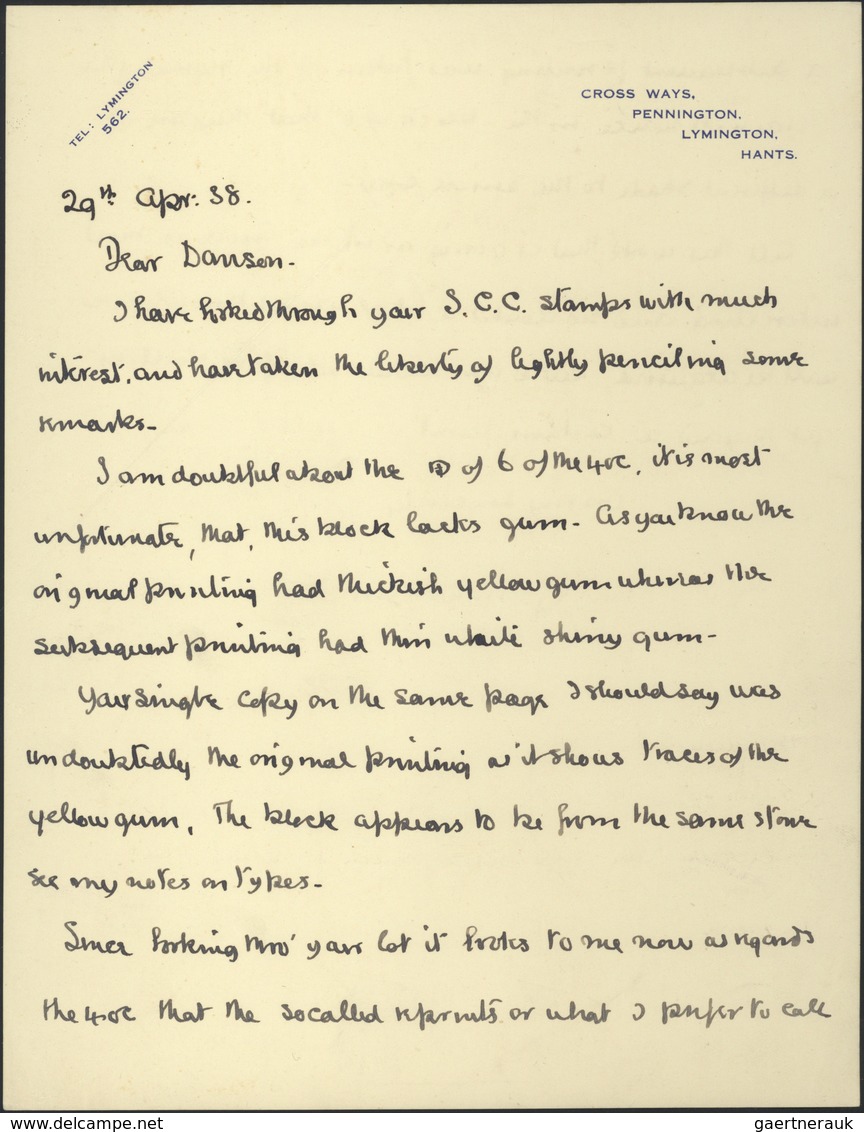 TEL: LYMINGTON
562.
CROSS WAYS,
PENNINGTON,
LYMINGTON,
HANTS.
29th Apr: 38.
Dear Danson.
I have looked through your S.C.C. stamps with much
interest, and have taken the liberty of lightly pencilling some
remarks.
I am doubtful about the ⊞ of 6 of the 40c, it is most
unfortunate, that, this block lacks gum. As you know the
original printing had thickish yellow gum whereas the
subsequent printing had thin white shiny gum.
Your single copy on the same page I should say was
undoubtedly the original printing as it shows traces of the
yellow gum. The block appears to be from the same stone
see my notes on types.
Since looking thro' your lot it looks to me now as regards
the 40c that the so called reprints or what I prefer to call
www.delcampe.net
gaertnerauk